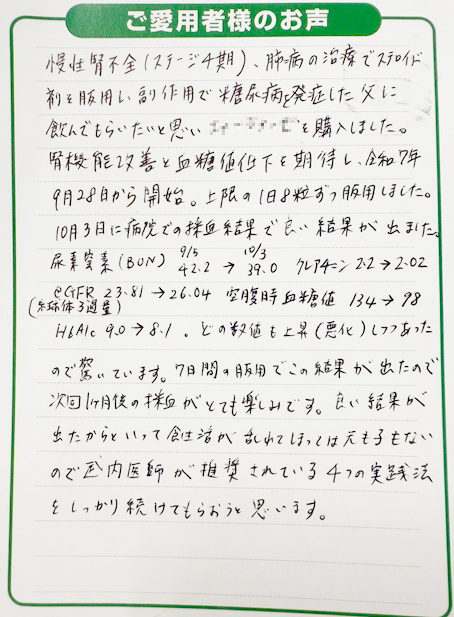 ご愛用者様のお声
慢性腎不全(ステージ4期)、肺病の治療でステロイド
剤を服用し、副作用で糖尿病を発症した父に
飲んでもらいたいと思い を購入しました。
腎機能改善と血糖値低下を期待し、令和7年
9月28日から開始。上限の1日8粒ずつ服用しました。
10月3日に病院での採血結果で良い結果が出ました。
尿素窒素(BUN) 9/5 42.2 → 10/3 39.0 クレアチニン 2.2→2.02
eGFR 23.81→26.04 空腹時血糖値 134→98
(糸球体ろ過量)
HbA1c 9.0→8.1。どの数値も上昇(悪化)しつつあった
ので驚いています。7日間の服用でこの結果が出たので
次回1ヶ月後の採血がとても楽しみです。良い結果が
出たからといって食生活が乱れてしまっては元も子もない
ので武内医師が推奨されている4つの実践法
をしっかり続けてもらおうと思います。